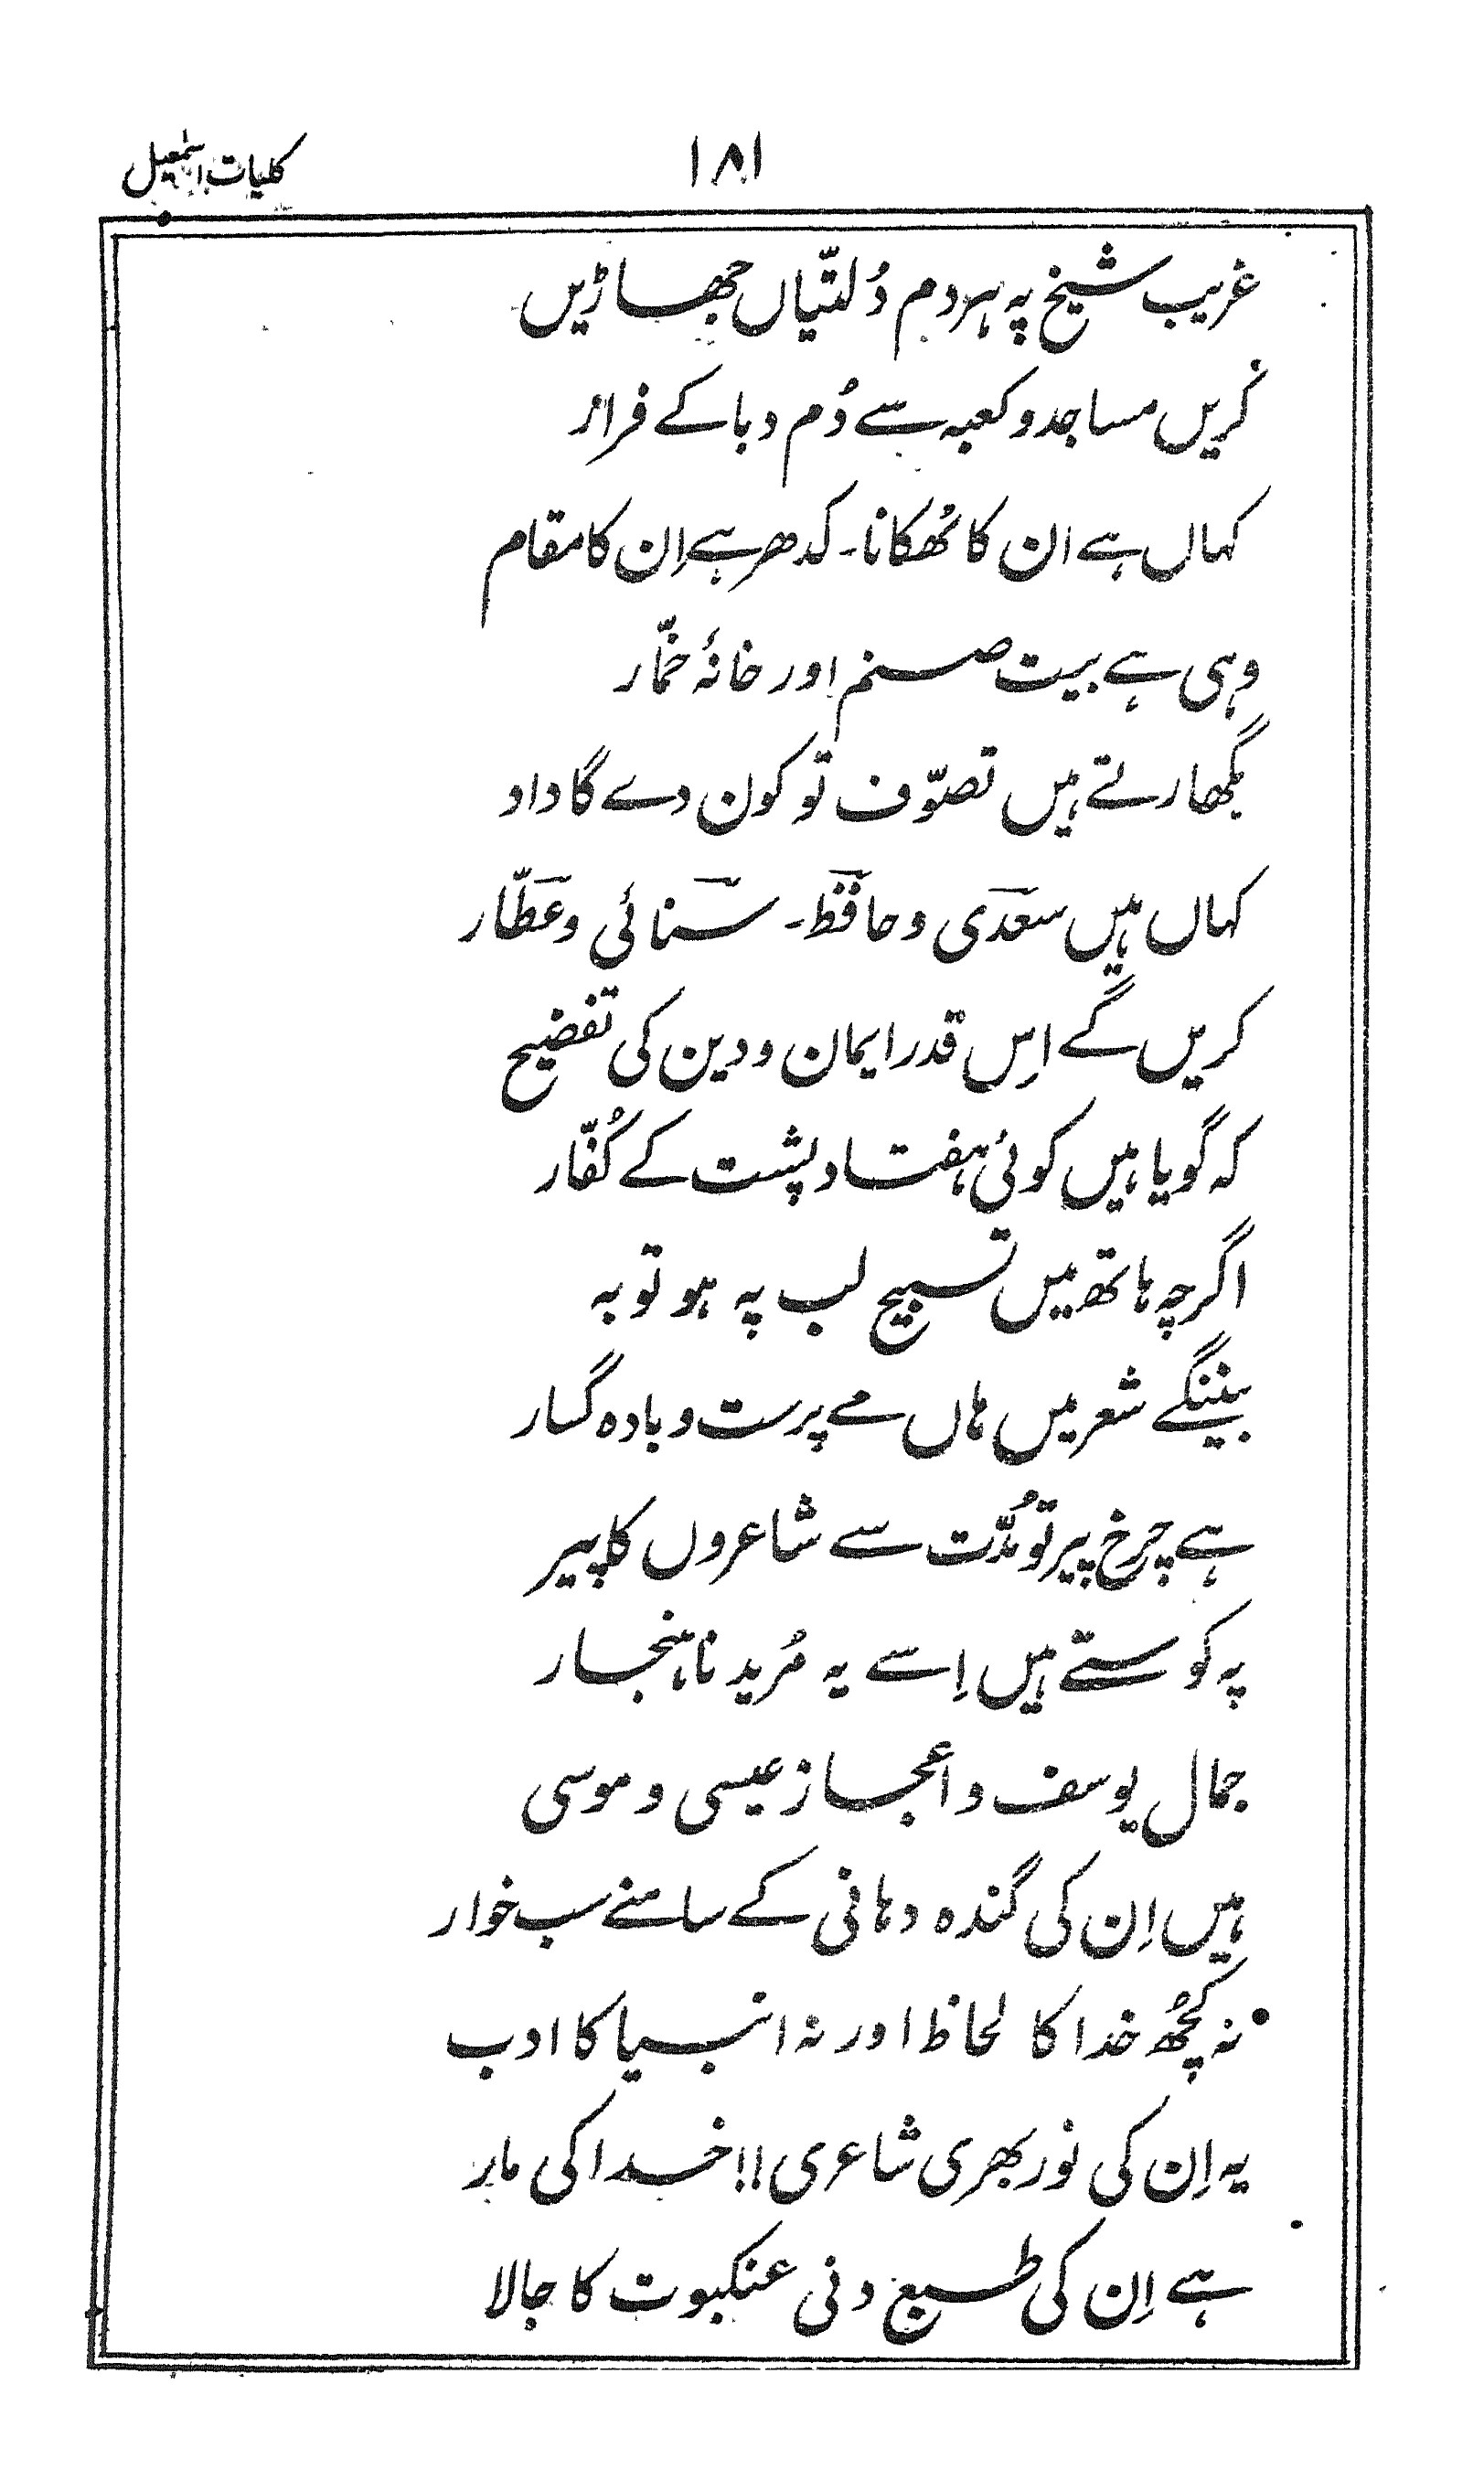 کلیات اسمٰعیل
۱۸۱
غریب شیخ پہ ہر دم دُلتّیاں جھاڑیں
کریں مساجد و کعبہ سے دُم دبا کے فرار
کہاں ہے ان کا ٹھکانا۔ کدھر ہے اِن کا مقام
وہی ہے بیت صنم اور خانۂ خمّار
بگھارتے ہیں تصوّف تو کون دے گا داد
کہاں ہیں سعدی و حافظ۔ سنائی و عطّار
کریں گے اِس قدر ایمان و دین کی تفضیح
کہ گویا ہیں کوئی ہفتاد پشت کے کُفّار
اگرچہ ہاتھ میں تسبیح لب پہ ہو توبہ
بنینگے شعر میں ہاں مے پرست و بادہ گسار
ہے چرخ پیر تو مُدّت سے شاعروں کا پیر
پہ کوستے ہیں اِسے یہ مُرید ناہنجار
جمال یوسف و اعجاز عیسی و موسی
ہیں اِن کی گندہ دہانی کے سامنے سب خوار
نہ کچُھ خدا کا لحاظ اور نہ انبیا کا ادب
یہ اِن کی نور بھری شاعری!! خدا کی مار
ہے اِن کی طبع دنی عنکبوت کا جالا